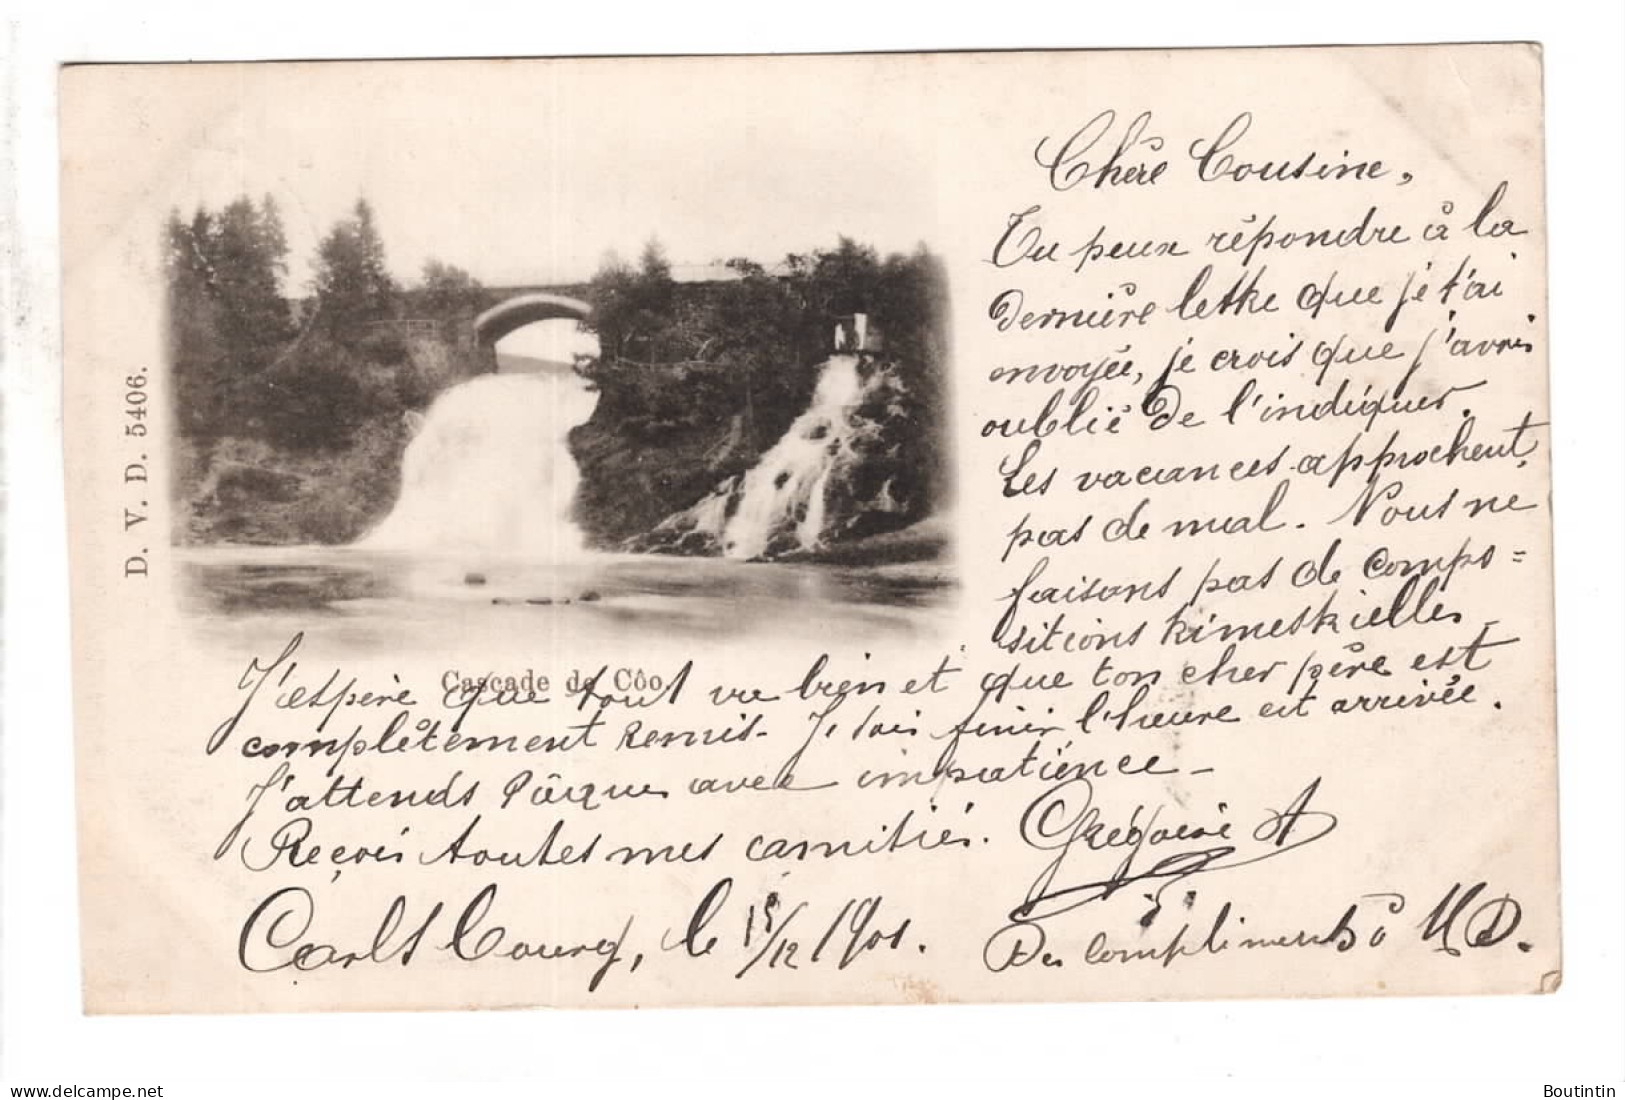 D. V. D. 5406.
Cascade de Côo
Chère Cousine,
Tu peux répondre à la
dernière lettre que je t'ai
envoyée, je crois que j'avais
oublié de l'indiquer.
Les vacances approchent,
pas de mal. Nous ne
faisons pas de compo=
sitions trimestrielles.
J'espère que tout va bien et que ton cher père est
complètement remis. Je dois finir l'heure est arrivée.
J'attends Pâques avec impatience
Reçois toutes mes amitiés. Grégoire A
Carlsbourg, le /12 1901.
Des compliments à M D.
Boutintin